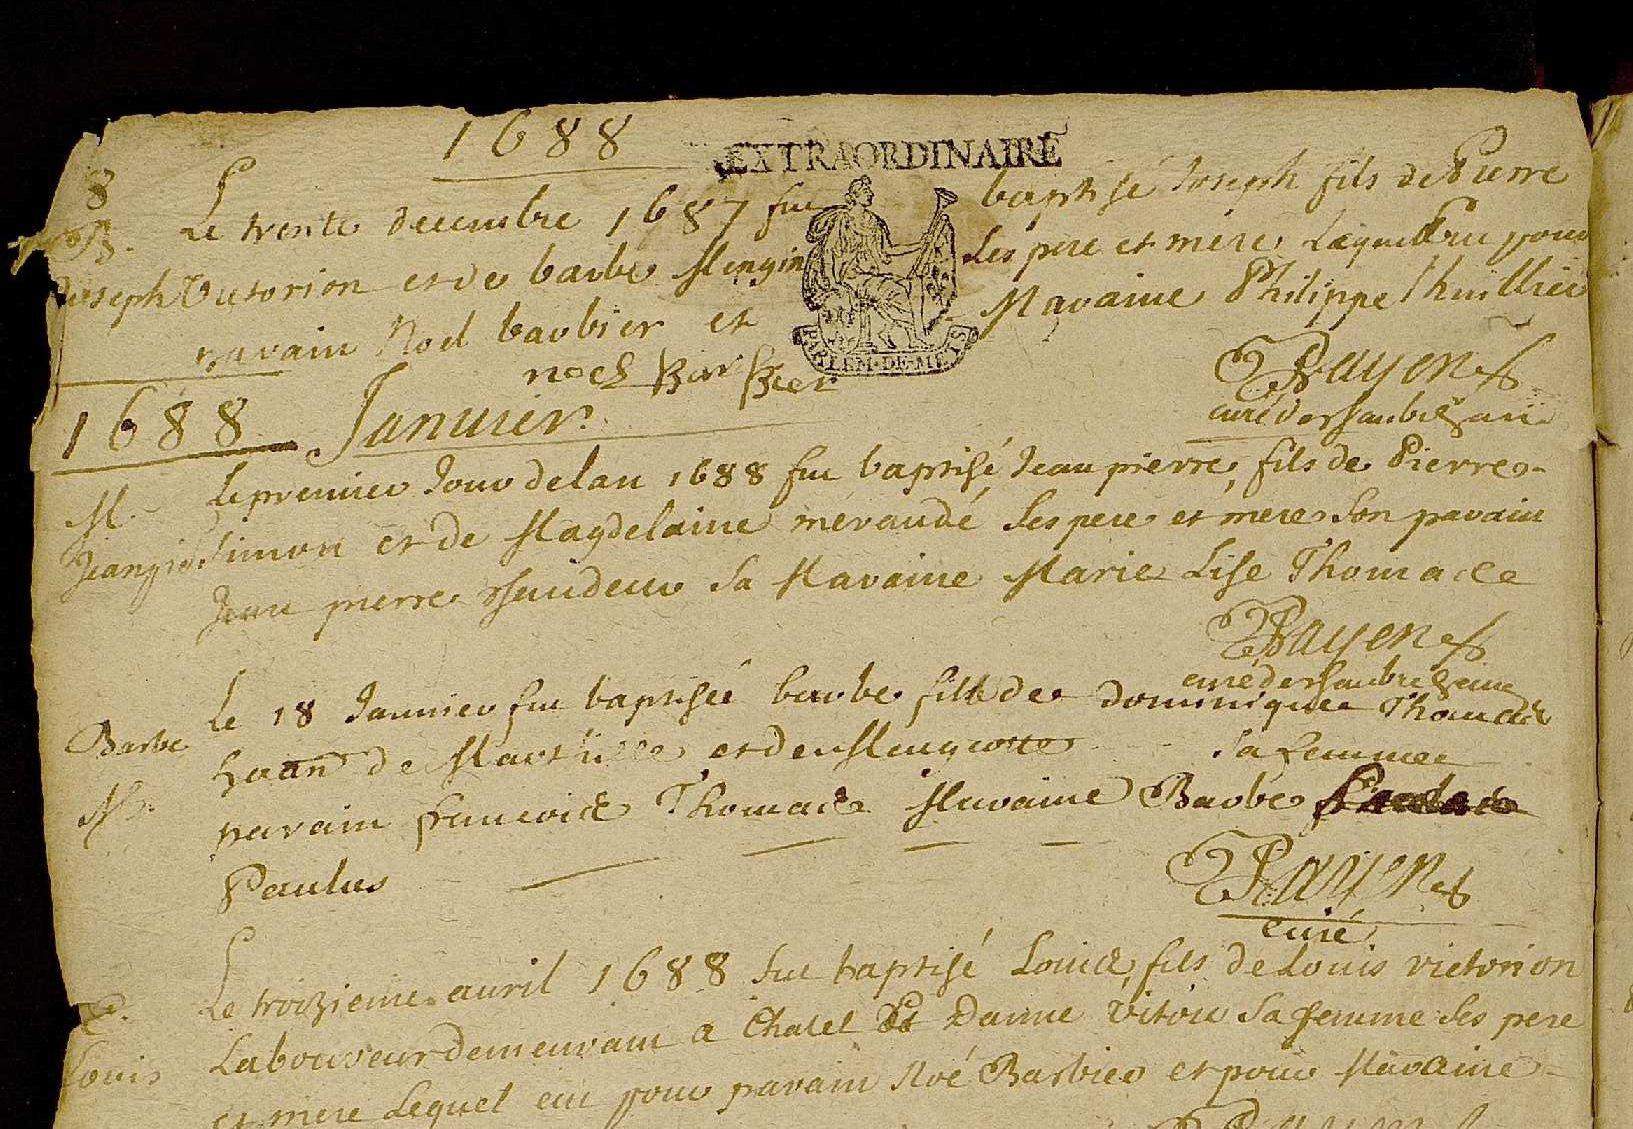 1688
EXTRAORDINAIRE
8
B.
Le trente decembre 1687 fut baptisé Joseph fils de Pierre
Joseph Victorion et de barbe Mengin ses pere et mere lequel eut pour
parain Noel barbier et Maraine Philippe thuillier
PARLEM·DE·METS
noel Bar Bier
Bayon
curé
1688 Januier
M.
le premier Jour de lan 1688 fut baptisé Jean pierre fils de Pierre
Simon et de Magdelaine meraudé ses pere et mere son parain
Jean pierre sa Maraine Marie Lise Thomas
Bayon
curé
Barbe
le 18 Januier fut baptisée barbe fille de Dominique Thomas
de et de Menguotte sa femme
parain francois Thomas Maraine Barbe
Paulus
Bayon
curé
Louis
Le troizieme auril 1688 fut baptisé Louis fils de Louis victorion
Laboureur demeurant a Chatel Et Danne Viton sa femme ses pere
et mere Lequel eut pour parain Noé Barbier et pour Maraine